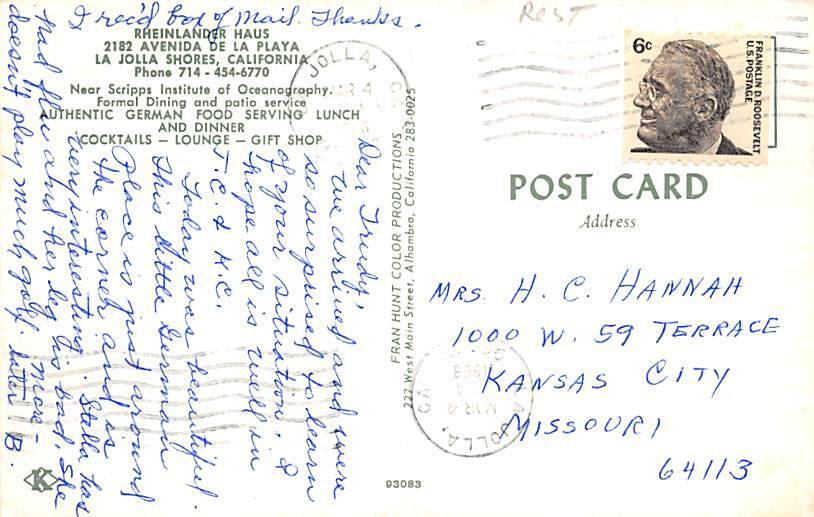 I rec'd box of mail. Thanks.
RHEINLANDER HAUS
2182 AVENIDA DE LA PLAYA
LA JOLLA SHORES, CALIFORNIA
Phone 714 - 454-6770
Near Scripps Institute of Oceanography.
Formal Dining and patio service
AUTHENTIC GERMAN FOOD SERVING LUNCH
AND DINNER
COCKTAILS — LOUNGE — GIFT SHOP
Dear Trudy,
We arrived and were
so surprised to learn
of your situation. I
hope all is well in
T.C. & K.C.
Today was beautiful.
This little German
Place is just around
the corner and is
very interesting. Stella has
had flu and her leg is bad. She
doesn't play much golf. Later B.
more -
FRAN HUNT COLOR PRODUCTIONS
227 West Main Street, Alhambra, California 283-0025
93083
K
REST
6c
FRANKLIN D. ROOSEVELT
U.S. POSTAGE
POST CARD
Address
MRS. H. C. HANNAH
1000 W. 59 TERRACE
KANSAS CITY
MISSOURI
64113
JOLLA, CA
MAR 4
JOLLA,
MAR 4
1968